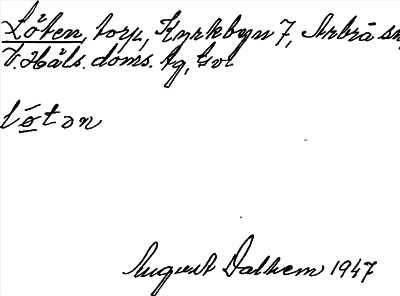 Löten, torp, Kyrkbyn 7, Arbrå sn,
V. Häls. doms. tg, Gvl
löt ən
August Dalhem 1947